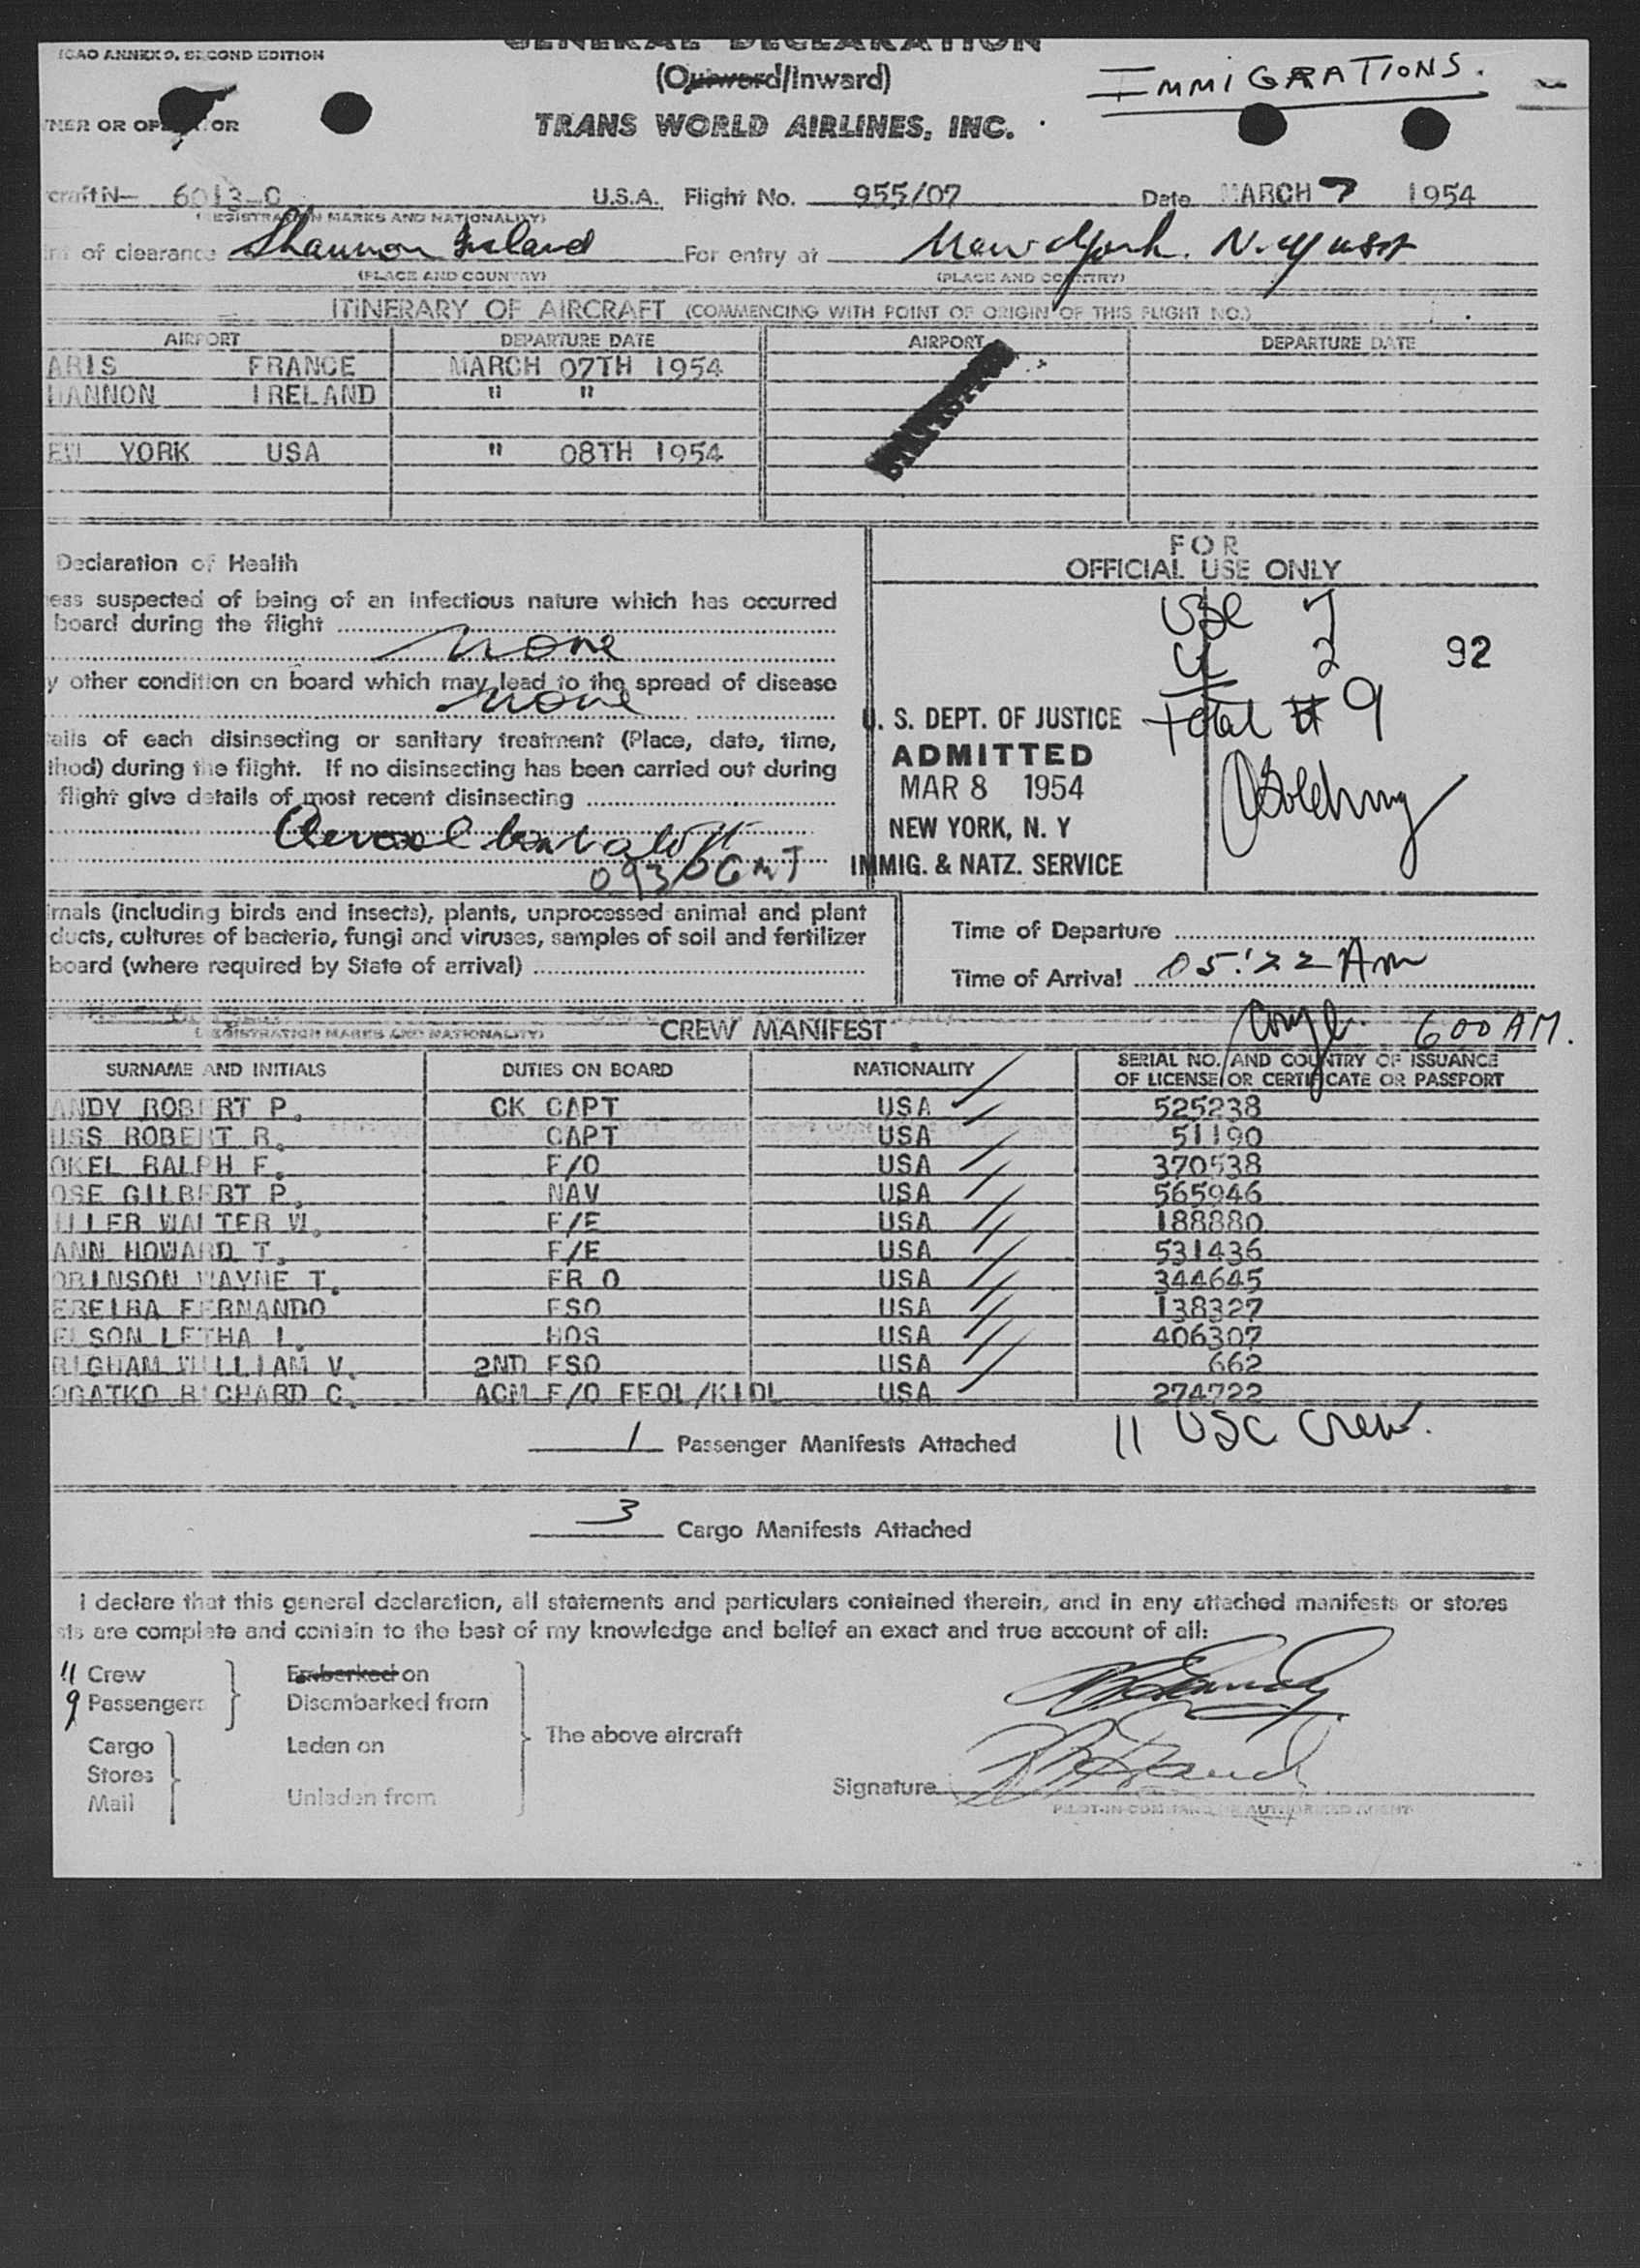 ICAO ANNEX 9, SECOND EDITION
GENERAL DECLARATION
(Outward/Inward)
IMMIGRATIONS.
NER OR OPERATOR
TRANS WORLD AIRLINES, INC.
craft N- 6013-C U.S.A. Flight No. 955/07 Date MARCH 7 1954
(REGISTRATION MARKS AND NATIONALITY)
of clearance Shannon Ireland For entry at New York. N.Y USA
(PLACE AND COUNTRY) (PLACE AND COUNTRY)
ITINERARY OF AIRCRAFT (COMMENCING WITH POINT OF ORIGIN OF THIS FLIGHT NO.)
AIRPORT DEPARTURE DATE AIRPORT DEPARTURE DATE
ARIS FRANCE MARCH 07TH 1954
HANNON IRELAND " "
EW YORK USA " 08TH 1954
Declaration of Health
FOR
OFFICIAL USE ONLY
ess suspected of being of an infectious nature which has occurred
board during the flight
none
y other condition on board which may lead to the spread of disease
none
ails of each disinsecting or sanitary treatment (Place, date, time,
thod) during the flight. If no disinsecting has been carried out during
flight give details of most recent disinsecting
Aerosol bomb aloft
0930 GMT
USC 7
2 92
Total # 9
U. S. DEPT. OF JUSTICE
ADMITTED
MAR 8 1954
NEW YORK, N. Y
IMMIG. & NATZ. SERVICE
imals (including birds and insects), plants, unprocessed animal and plant
ducts, cultures of bacteria, fungi and viruses, samples of soil and fertilizer
board (where required by State of arrival)
Time of Departure
Time of Arrival 05:22 AM
600 AM.
(REGISTRATION MARKS AND NATIONALITY) CREW MANIFEST
SURNAME AND INITIALS DUTIES ON BOARD NATIONALITY SERIAL NO. AND COUNTRY OF ISSUANCE
OF LICENSE OR CERTIFICATE OR PASSPORT
ANDY ROBERT P. CK CAPT USA 525238
USS ROBERT R. CAPT USA 51190
OKEL RALPH F. F/O USA 370538
OSE GILBERT P. NAV USA 565946
LLER WALTER W. F/E USA 188880
ANN HOWARD T. F/E USA 531436
OBINSON WAYNE T. FR O USA 344645
EREIRA FERNANDO FSO USA 138327
ELSON LETHA I. HOS USA 406307
RIGHAM WILLIAM V. 2ND FSO USA 662
OGATKO RICHARD C. ACM F/O FFOL/KIDL USA 274722
1 Passenger Manifests Attached
11 USC Crew.
3 Cargo Manifests Attached
I declare that this general declaration, all statements and particulars contained therein, and in any attached manifests or stores
sts are complete and contain to the best of my knowledge and belief an exact and true account of all:
11 Crew
9 Passengers
Embarked on
Disembarked from
Cargo
Stores
Mail
Laden on
Unladen from
The above aircraft
Signature
PILOT-IN-COMMAND OR AUTHORIZED AGENT